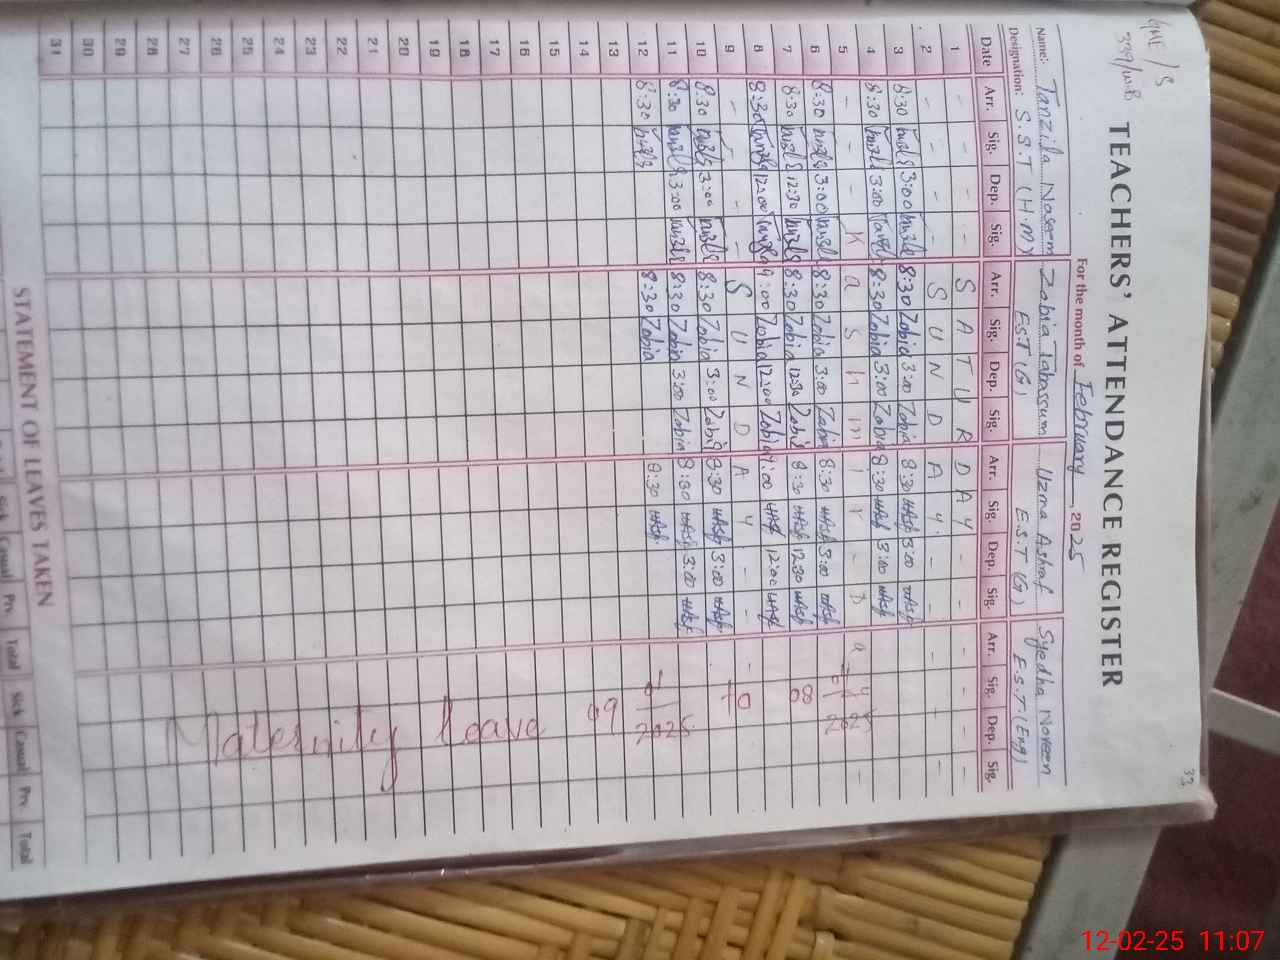 33
TEACHERS' ATTENDANCE REGISTER
339/W.B
For the month of February, 2025
Name: Tanzila Naseem Zobia Tabassum Uzma Ashraf Syedha Noreen
Designation: S.S.T (H.M) E.S.T (G) E.S.T (G) E.S.T (Eng)
Date Arr. Sig. Dep. Sig. Arr. Sig. Dep. Sig. Arr. Sig. Dep. Sig. Arr. Sig. Dep. Sig.
1 - - - - S A T U R D A Y - - - - -
2 - - - - S U N D A Y - - - - -
3 8:30 3:00 8:30 Zobia 3:00 Zobia 8:30 3:00
4 8:30 3:00 8:30 Zobia 3:00 Zobia 8:30 3:00
5 - - - K a s h m i r - D a y -
6 8:30 3:00 8:30 Zobia 3:00 Zobia 8:30 3:00
7 8:30 12:30 8:30 Zobia 12:30 Zobia 8:30 12:30
8 8:30 12:00 9:00 Zobia 12:00 Zobia 12:00
9 - - - - S U N D A Y - - -
10 8:30 3:00 8:30 Zobia 3:00 Zobia 8:30 3:00
11 8:30 3:00 8:30 Zobia 3:00 Zobia 8:30 3:00
12 8:30 8:30 Zobia 8:30
13
14
15
16
17
18
19
20
21
22
23
24
25
26
27
28
29
30
31
2025
08
to
09
2025
Maternity leave
STATEMENT OF LEAVES TAKEN
Sick Casual Prv. Total Sick Casual Prv. Total
12-02-25 11:07